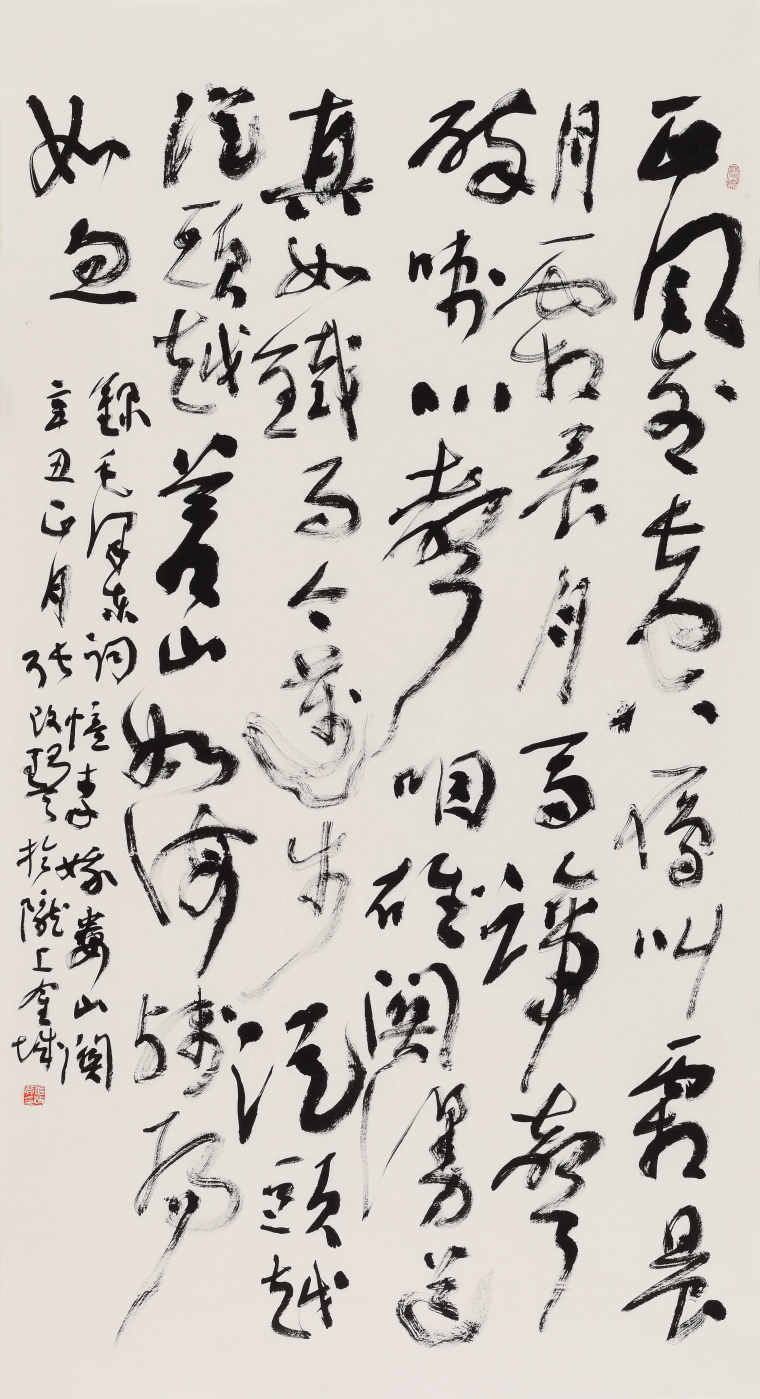 西風烈長空雁叫霜晨
月霜晨月馬蹄聲
碎喇叭聲咽雄關漫道
真如鐵而今邁步從頭越
從頭越蒼山如海殘陽
如血
錄毛澤東詞憶秦娥婁山關
辛丑正月張改琴於隴上金城